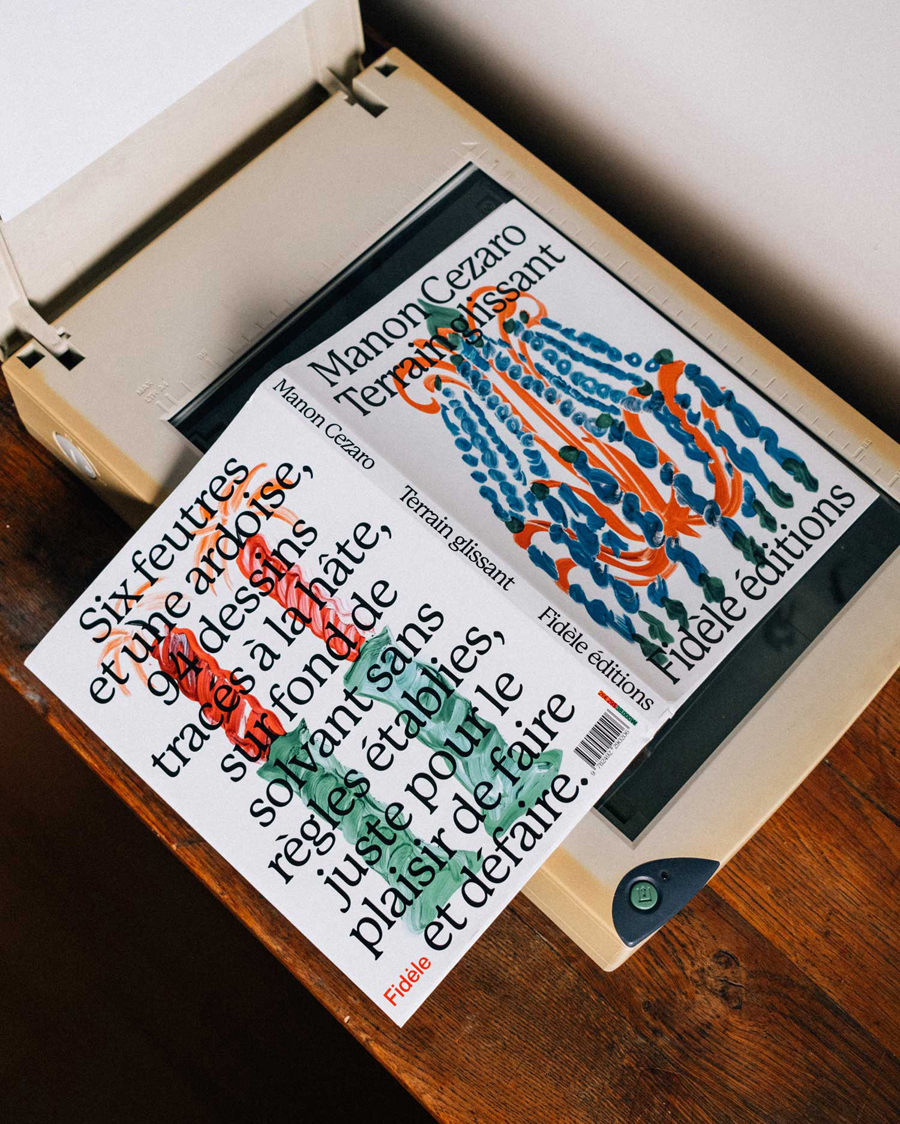 Manon Cezaro
Terrain glissant
Fidèle éditions
Manon Cezaro
Terrain glissant
Fidèle éditions
Six feutres
et une ardoise,
94 dessins
tracés à la hâte,
sur fond de
solvant sans
règles établies,
juste pour le
plaisir de faire
et défaire.
Fidèle